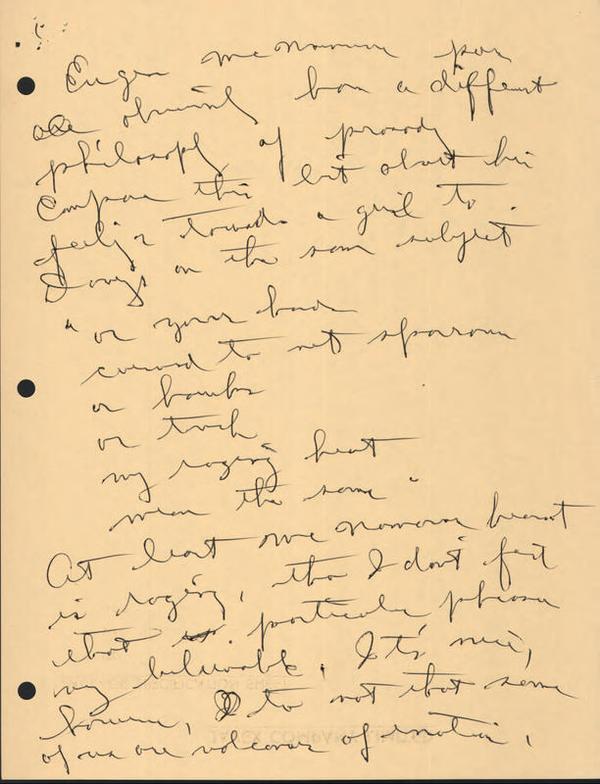 Eugene McNamara's poems
are obviously from a different
philosophy of prosody
Compare this bit about his
feelings towards a girl to
Doug's on the same subject
" or your hands
curved to net sparrows
or bombs
or touch
my raging heart
mean the same "
At least McNamara's heart
is raging, tho I don't feel
that particular phrase
very believable. It's nice,
however, to not that some
of us are volcanoes of emotion,